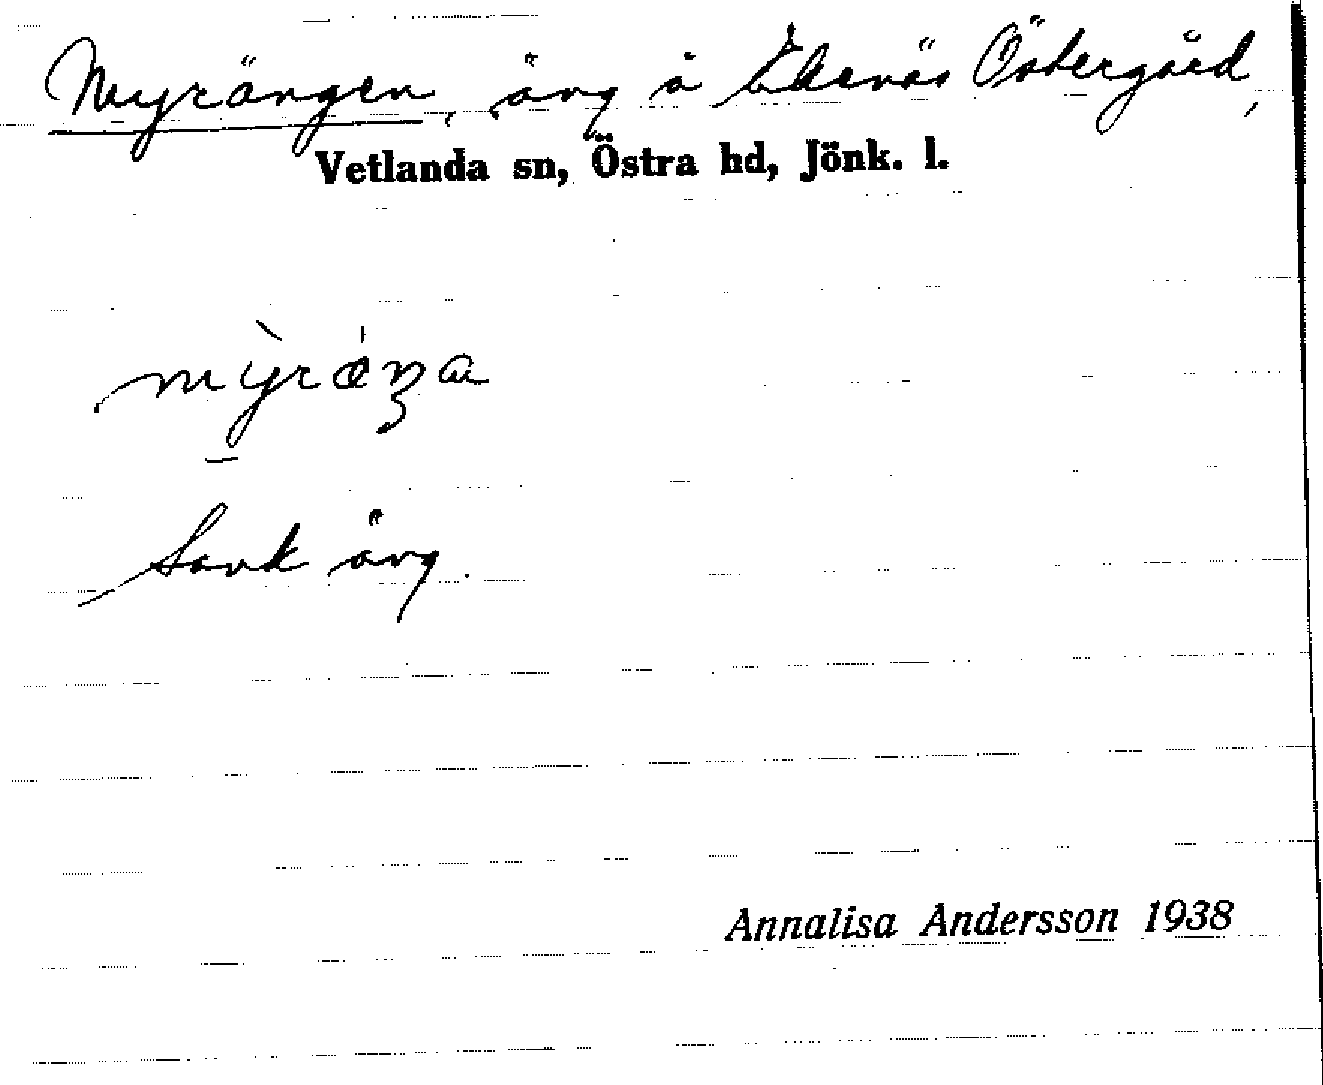 Myrängen, äng å Ekenäs Östergård,
Vetlanda sn, Östra hd, Jönk. l.
Sank äng.
Annalisa Andersson 1938